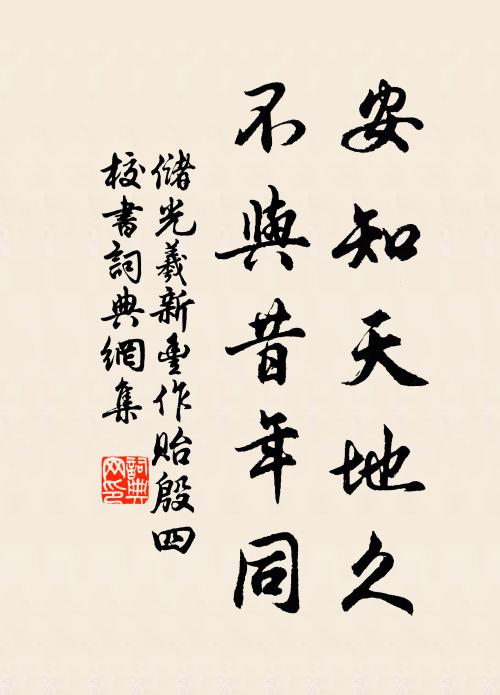 安知天地久
不與昔年同
儲光羲新豐作貽殷四
校書詞典網集
詞典
网印